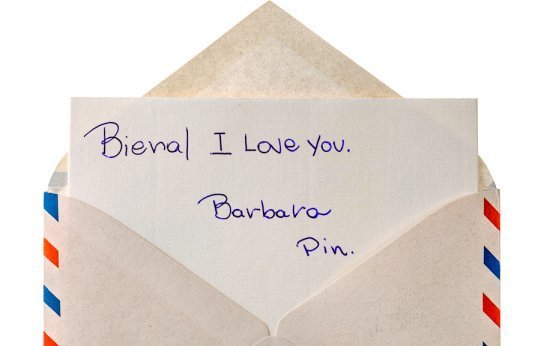 Bienal I Love you.
Barbara
Pin.